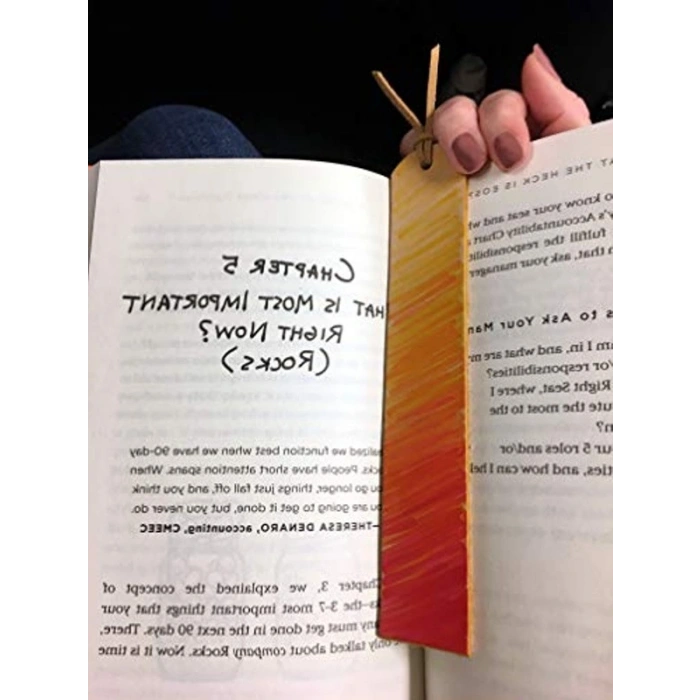 AT THE HECK IS EOS
to know your seat and
Accountability Chart
fulfill the
that, ask your manager
to Ask Your
am I in, and what are
responsibilities?
Right Seat, where I
the most to the
5 roles and/or
and how can I
CHAPTER 5
HAT IS MOST IMPORTANT
RIGHT NOW?
(ROCKS)
we function best when we have 90-day
People have short attention spans. When
go longer, things just fall off, and you think
you are going to get it done, but you never do.
—THERESA DENARO, accounting, CMEEC
Chapter 3, we explained the concept of
the 3-7 most important things that your
must get done in the next 90 days. There,
only talked about company Rocks. Now it is time